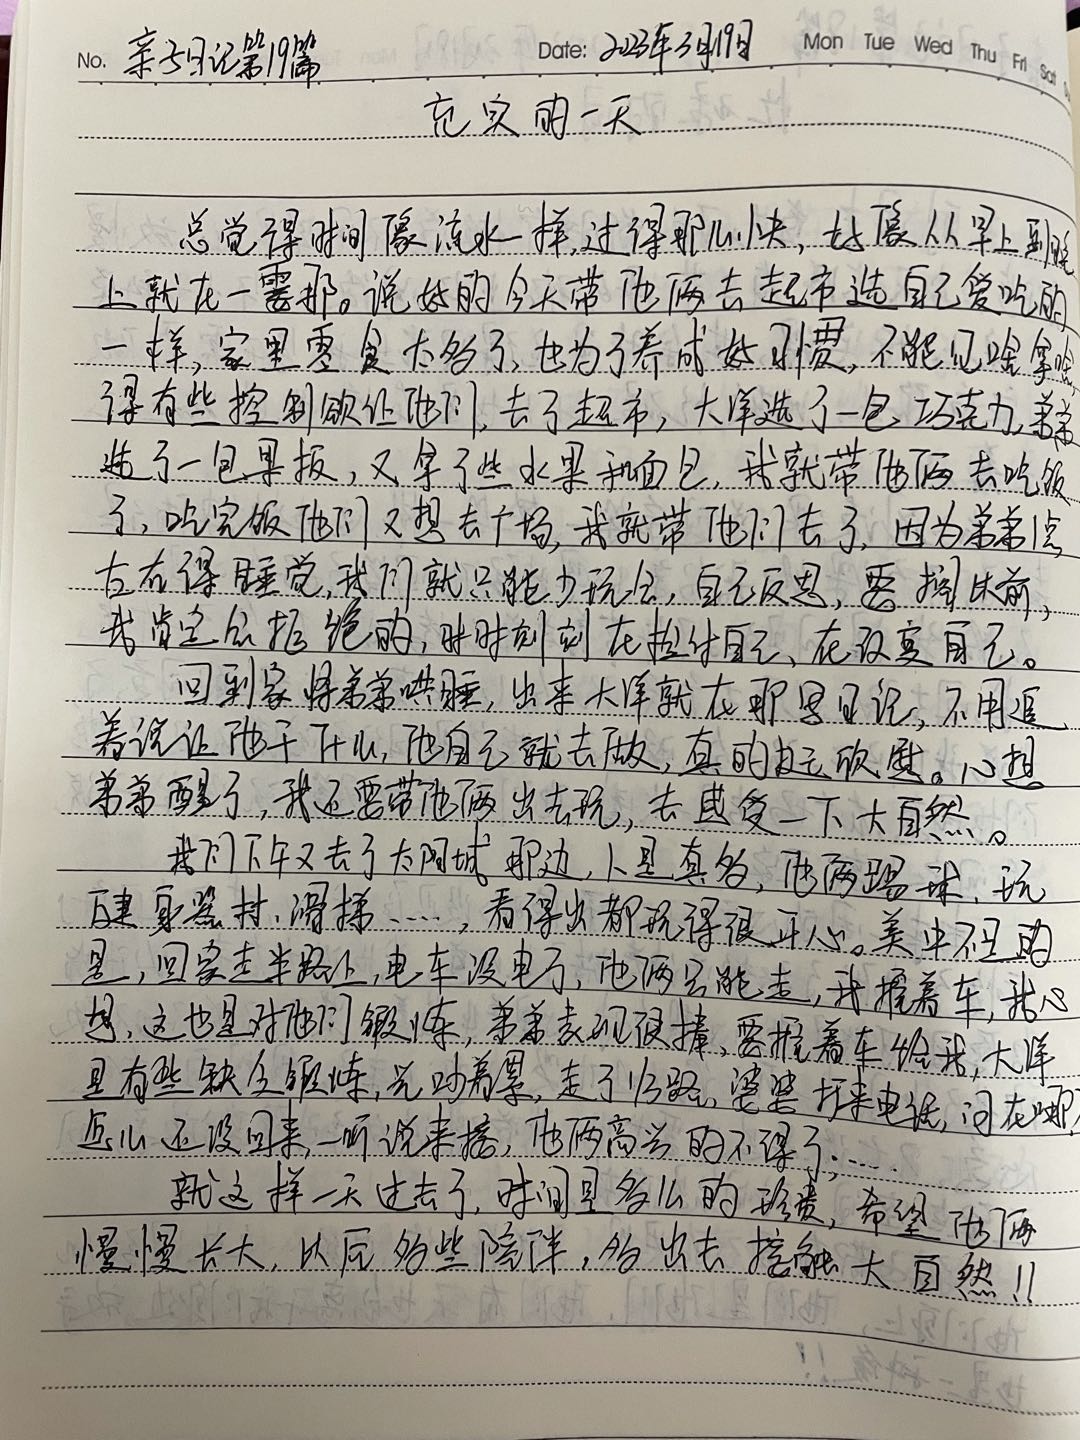 No. 亲子日记第19篇 Date: 2023年3月19日 Mon Tue Wed Thu Fri Sat
充实的一天
总觉得时间像流水一样,过得那么快,好像从早上到晚
上就在一霎那。说好的今天带他俩去超市选自己爱吃的
一样,家里零食太多了,也为了养成好习惯,不能见啥拿啥,
得有些控制欲让他们,去了超市,大洋选了一包巧克力,弟弟
选了一包果板,又拿了些水果和面包,我就带他俩去吃饭
了,吃完饭他们又想去广场,我就带他们去了,因为弟弟1点
左右得睡觉,我们就只能少玩会,自己反思,要搁以前,
我肯定会拒绝的,时时刻刻在检讨自己、在改变自己。
回到家将弟弟哄睡,出来大洋就在那写日记,不用追
着说让他干什么,他自己就去做,真的好欣慰。心想
弟弟醒了,我还要带他俩出去玩,去感受一下大自然。
我们下午又去了太阳城那边,人是真多,他俩踢球、玩
健身器材、滑梯……,看得出都玩得很开心。美中不足的
是,回家走半路上,电车没电了,他俩只能走,我推着车,我心
想,这也是对他们锻炼,弟弟表现很棒,要推着车给我,大洋
是有些缺乏锻炼,光吵着累,走了1/3路,婆婆打来电话,问在哪?
怎么还没回来,一听说来接,他俩高兴的不得了;……
就这样一天过去了,时间是多么的珍贵,希望他俩
慢慢长大,以后多些陪伴,多出去接触大自然!!